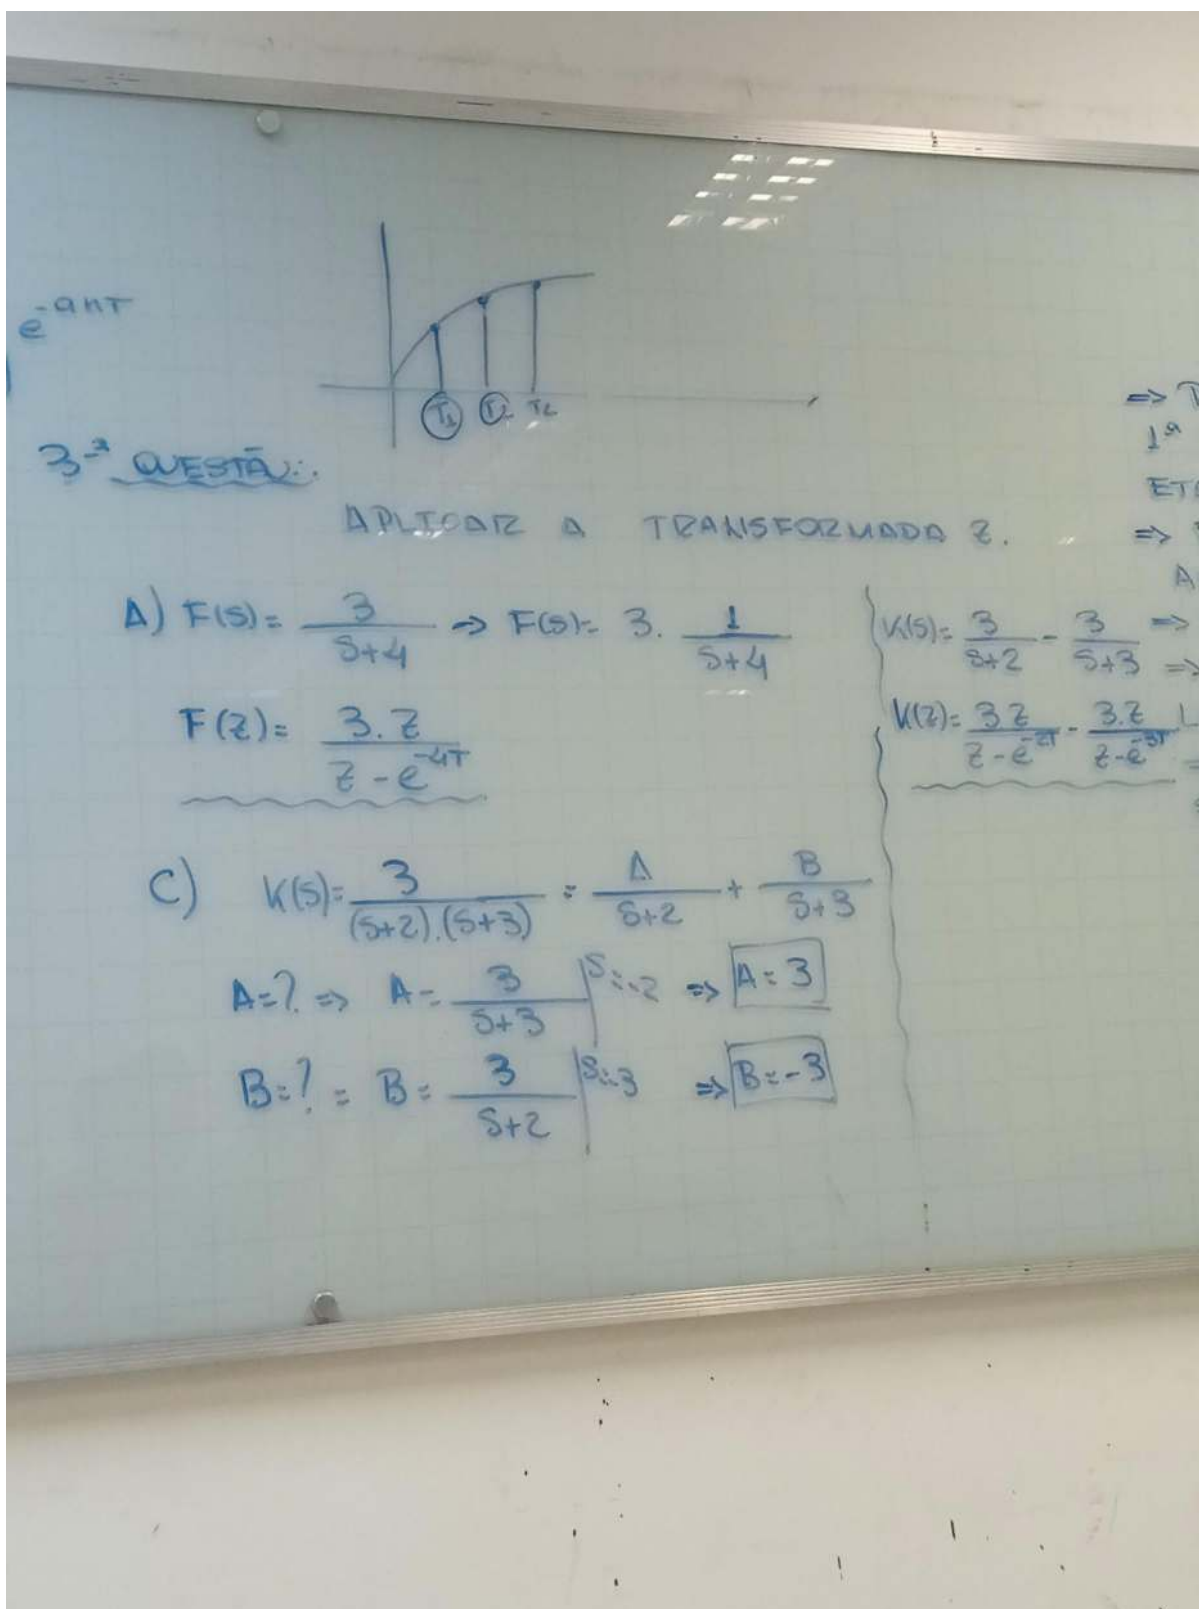 e^-anT
T1 T2 T2
3-ª QUESTÃ:.
APLICAR A TRANSFORMADA Z.
A) F(S)= 3/(S+4) => F(S)= 3. 1/(S+4)
F(Z)= 3.Z/(Z-e^-4T)
C) K(S)= 3/((S+2).(S+3)) = A/(S+2) + B/(S+3)
A=? => A= 3/(S+3) | S=-2 => A=3
B=? = B= 3/(S+2) | S=-3 => B=-3
K(S)= 3/(S+2) - 3/(S+3)
K(Z)= 3.Z/(Z-e^-2T) - 3.Z/(Z-e^-3T)
=>
1ª
=>
=>
=>